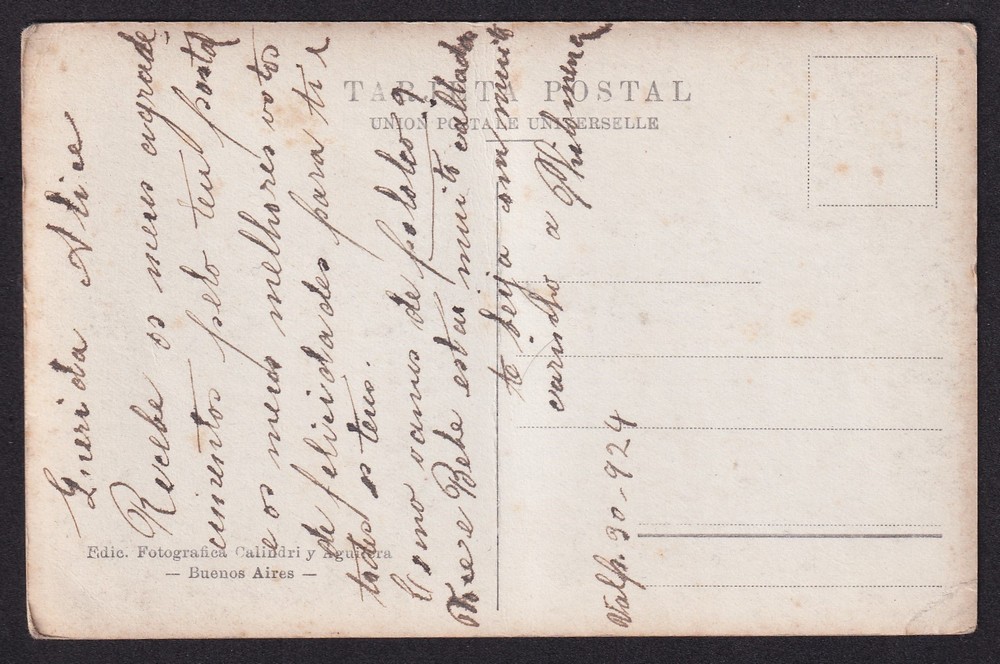 TARJETA POSTAL
UNION POSTALE UNIVERSELLE
Querida Alice
Recebe os meus agrade
cimentos pelo teu postal
e os meus melhores votos
de felicidades para ti e
todos os teus.
Como vamos de
Bebe estai muito
te beija com muito
carinho a
Valp. 30-924
Edic. Fotografica Calindri y Aguilera
— Buenos Aires —